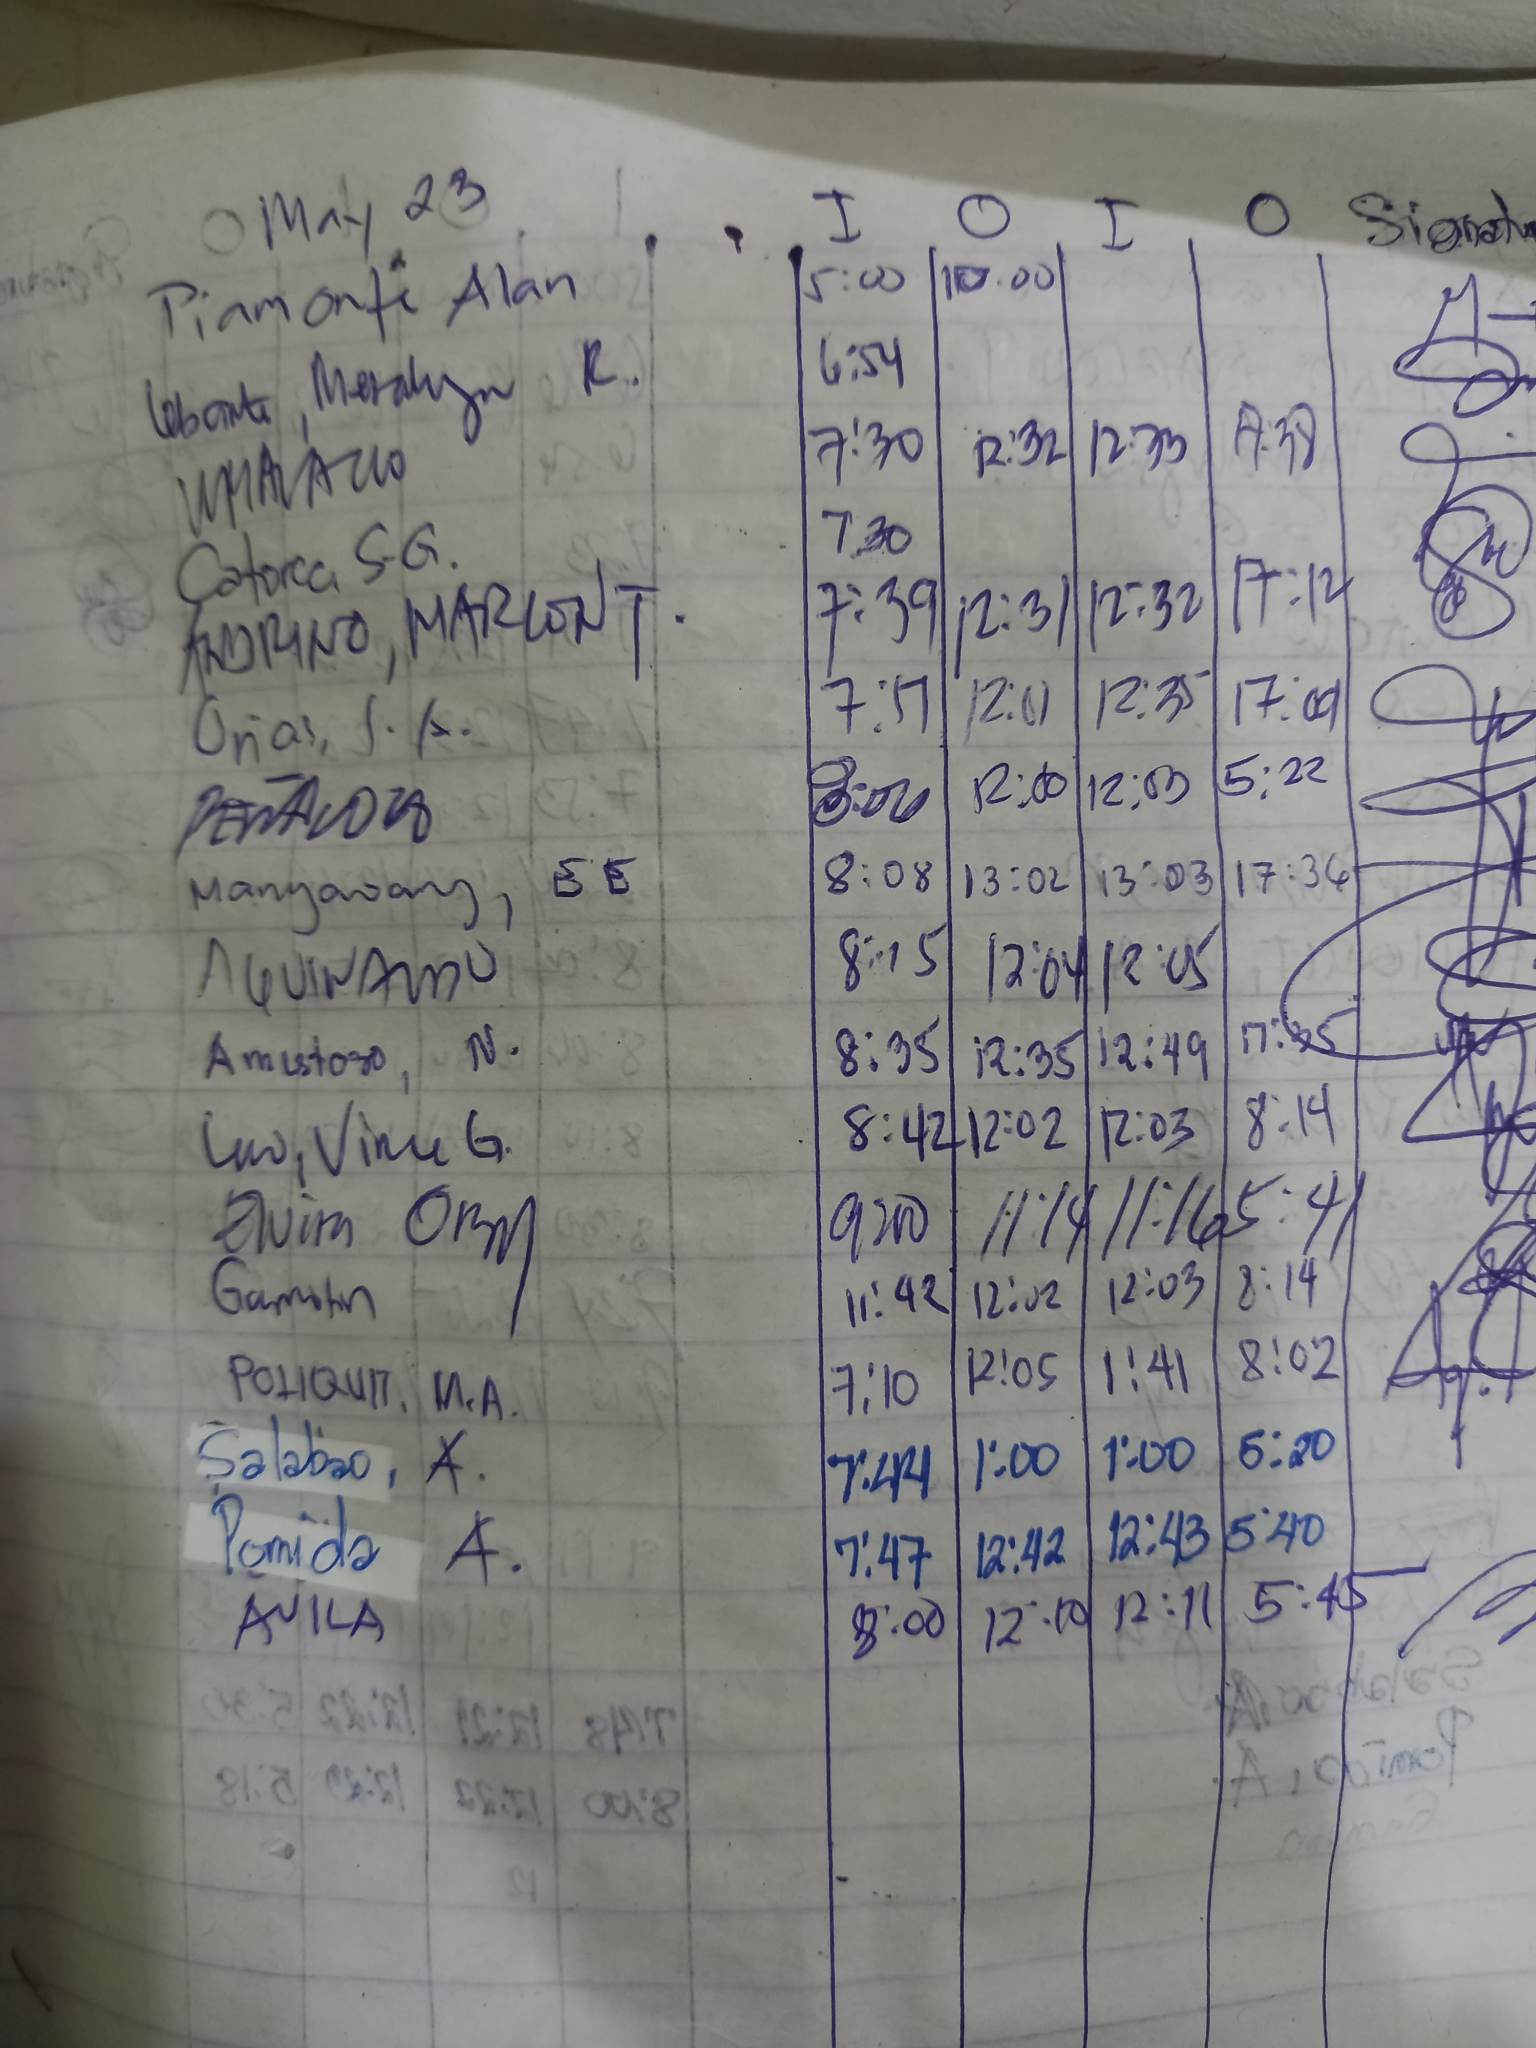 May 23 I O I O Signatu
Piamonte Alan 5:00 10:00
Meralyn R. 6:54
7:30 12:32 12:33 17:38
Catorce S.G. 7:30
ANDRINO, MARLON T. 7:39 12:31 12:32 17:12
Orias, J. A. 12:01 12:35 17:09
12:00 12:03 5:22
Mangawang, EE 8:08 13:02 13:03 17:36
AGUINALDO 8:15 12:04 12:05
Amistoso, N. 8:35 12:35 12:49 17:35
Vince G. 8:42 12:02 12:03 8:14
Elvira 9:00 11:14 11:16 5:41
Gamotin 11:42 12:02 12:03 8:14
POLIQUIT, M.A. 7:10 12:05 1:41 8:02
Salabao, A. 7:44 1:00 1:00 5:20
Pomida A. 7:47 12:42 12:43 5:40
AVILA 8:00 12:10 12:11 5:45